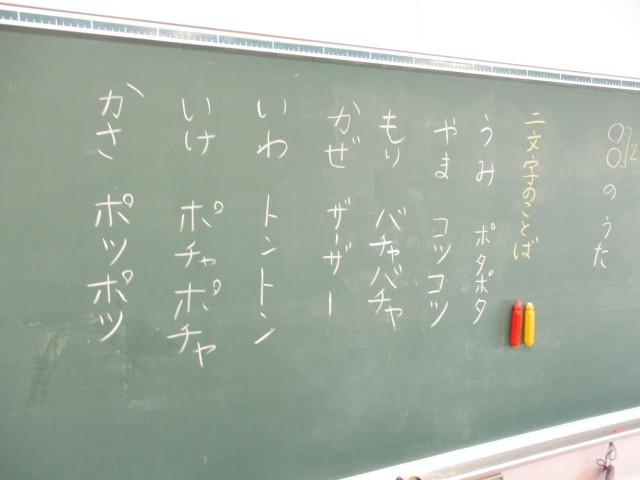 ○○のうた
2
二文字のことば
うみ ポタポタ
やま コツコツ
もり バチャバチャ
かぜ ザーザー
いわ トントン
いけ ポチャポチャ
かさ ポツポツ